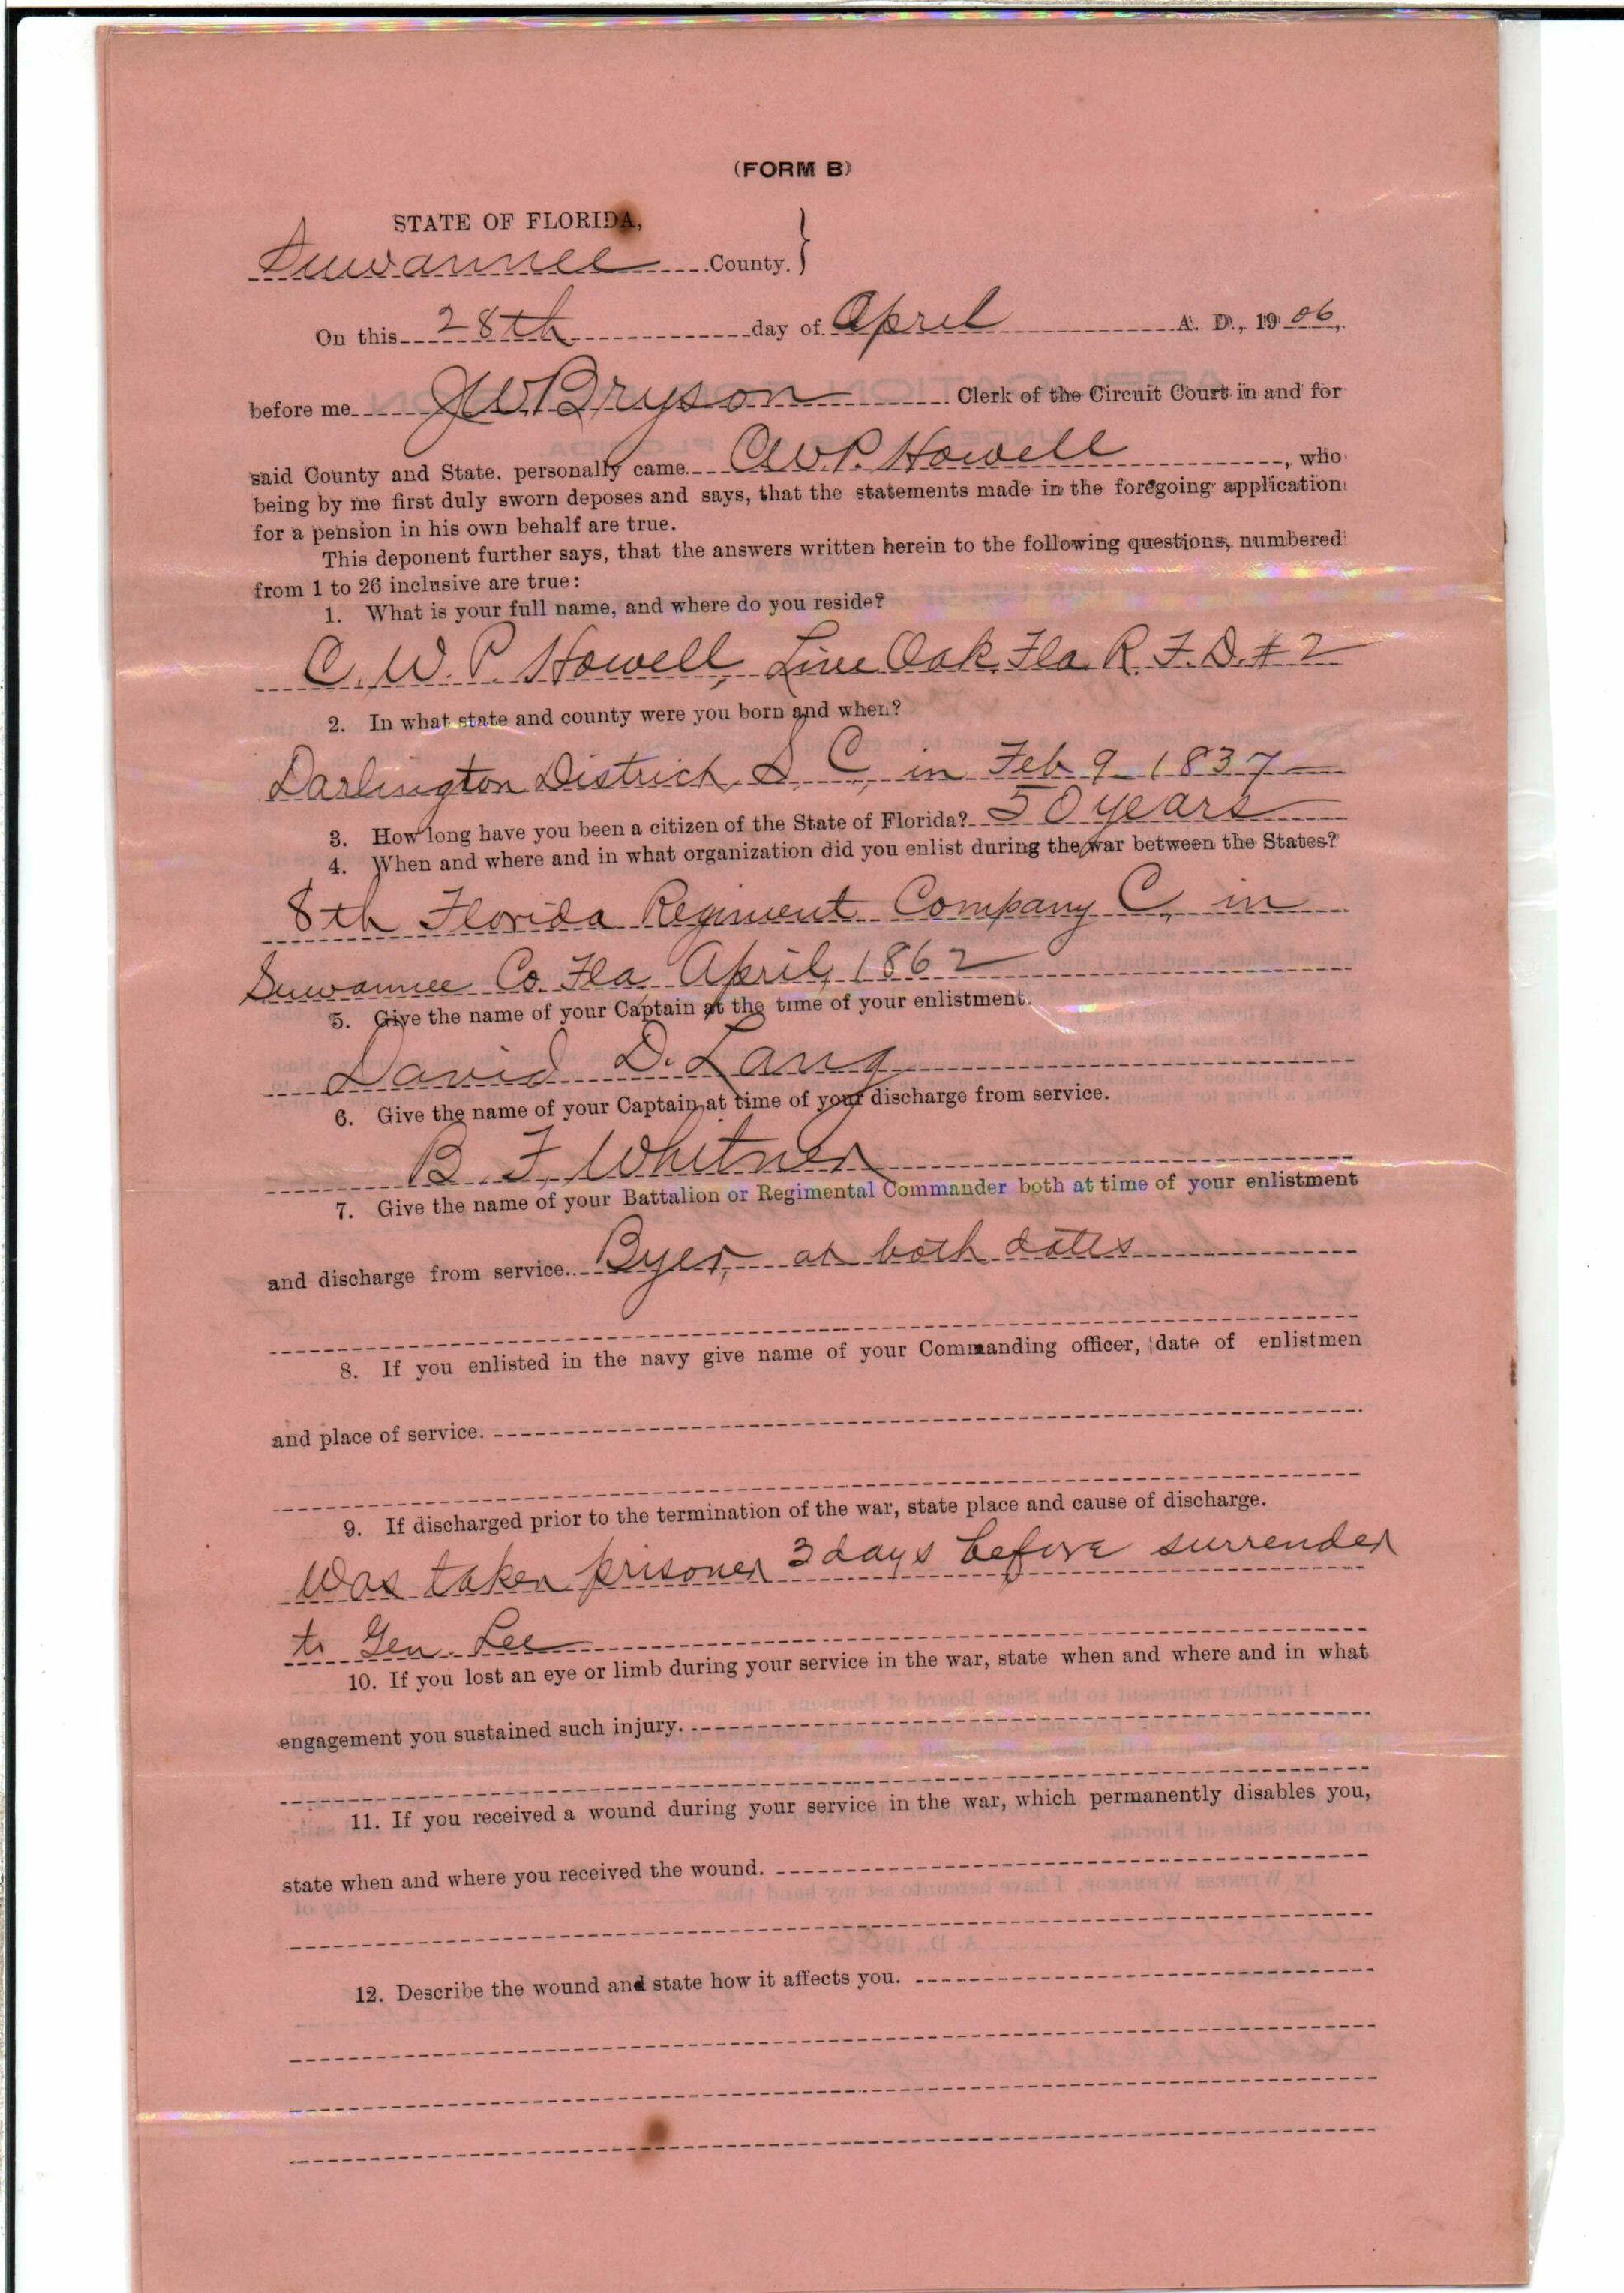 (FORM B)
STATE OF FLORIDA,
Suwannee County. }
On this 28th day of April A. D., 1906,
before me J W Bryson Clerk of the Circuit Court in and for
said County and State. personally came C W. P. Howell, who
being by me first duly sworn deposes and says, that the statements made in the foregoing application
for a pension in his own behalf are true.
This deponent further says, that the answers written herein to the following questions, numbered
from 1 to 26 inclusive are true:
1. What is your full name, and where do you reside?
C. W. P. Howell, Live Oak, Fla. R. F. D. # 2
2. In what state and county were you born and when?
Darlington District, S. C, in Feb 9 1837
3. How long have you been a citizen of the State of Florida? 50 years
4. When and where and in what organization did you enlist during the war between the States?
8th Florida Regiment Company C, in
Suwannee Co. Fla. April, 1862
5. Give the name of your Captain at the time of your enlistment.
David D. Lang
6. Give the name of your Captain at time of your discharge from service.
B. F. Whitner
7. Give the name of your Battalion or Regimental Commander both at time of your enlistment
and discharge from service. Byer, at both dates
8. If you enlisted in the navy give name of your Commanding officer, date of enlistmen
and place of service.
9. If discharged prior to the termination of the war, state place and cause of discharge.
Was taken prisoner 3 days before surrender
to Gen. Lee
10. If you lost an eye or limb during your service in the war, state when and where and in what
engagement you sustained such injury.
11. If you received a wound during your service in the war, which permanently disables you,
state when and where you received the wound.
12. Describe the wound and state how it affects you.